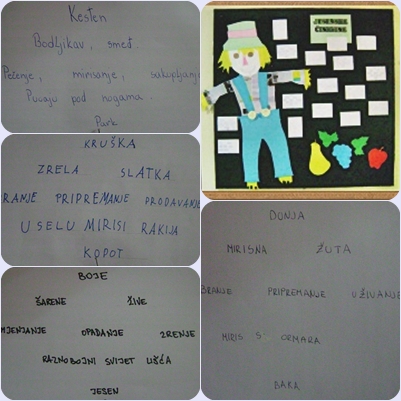 Kesten
Bodljikav, smeđ.
Pečenje, mirisanje, sakupljanje
Pucaju pod nogama.
Park
KRUŠKA
ZRELA SLATKA
BRANJE PRIPREMANJE PRODAVANJE
U SELU MIRISI RAKIJA
KOPOT
BOJE
ŠARENE ŽIVE
MJENJANJE OPADANJE ZRENJE
RAZNOBOJNI SVIJET LIŠĆA
JESEN
JESENSKE
DUNJA
MIRISNA ŽUTA
BRANJE PRIPREMANJE UŽIVANJE
MIRIS S ORMARA
BAKA